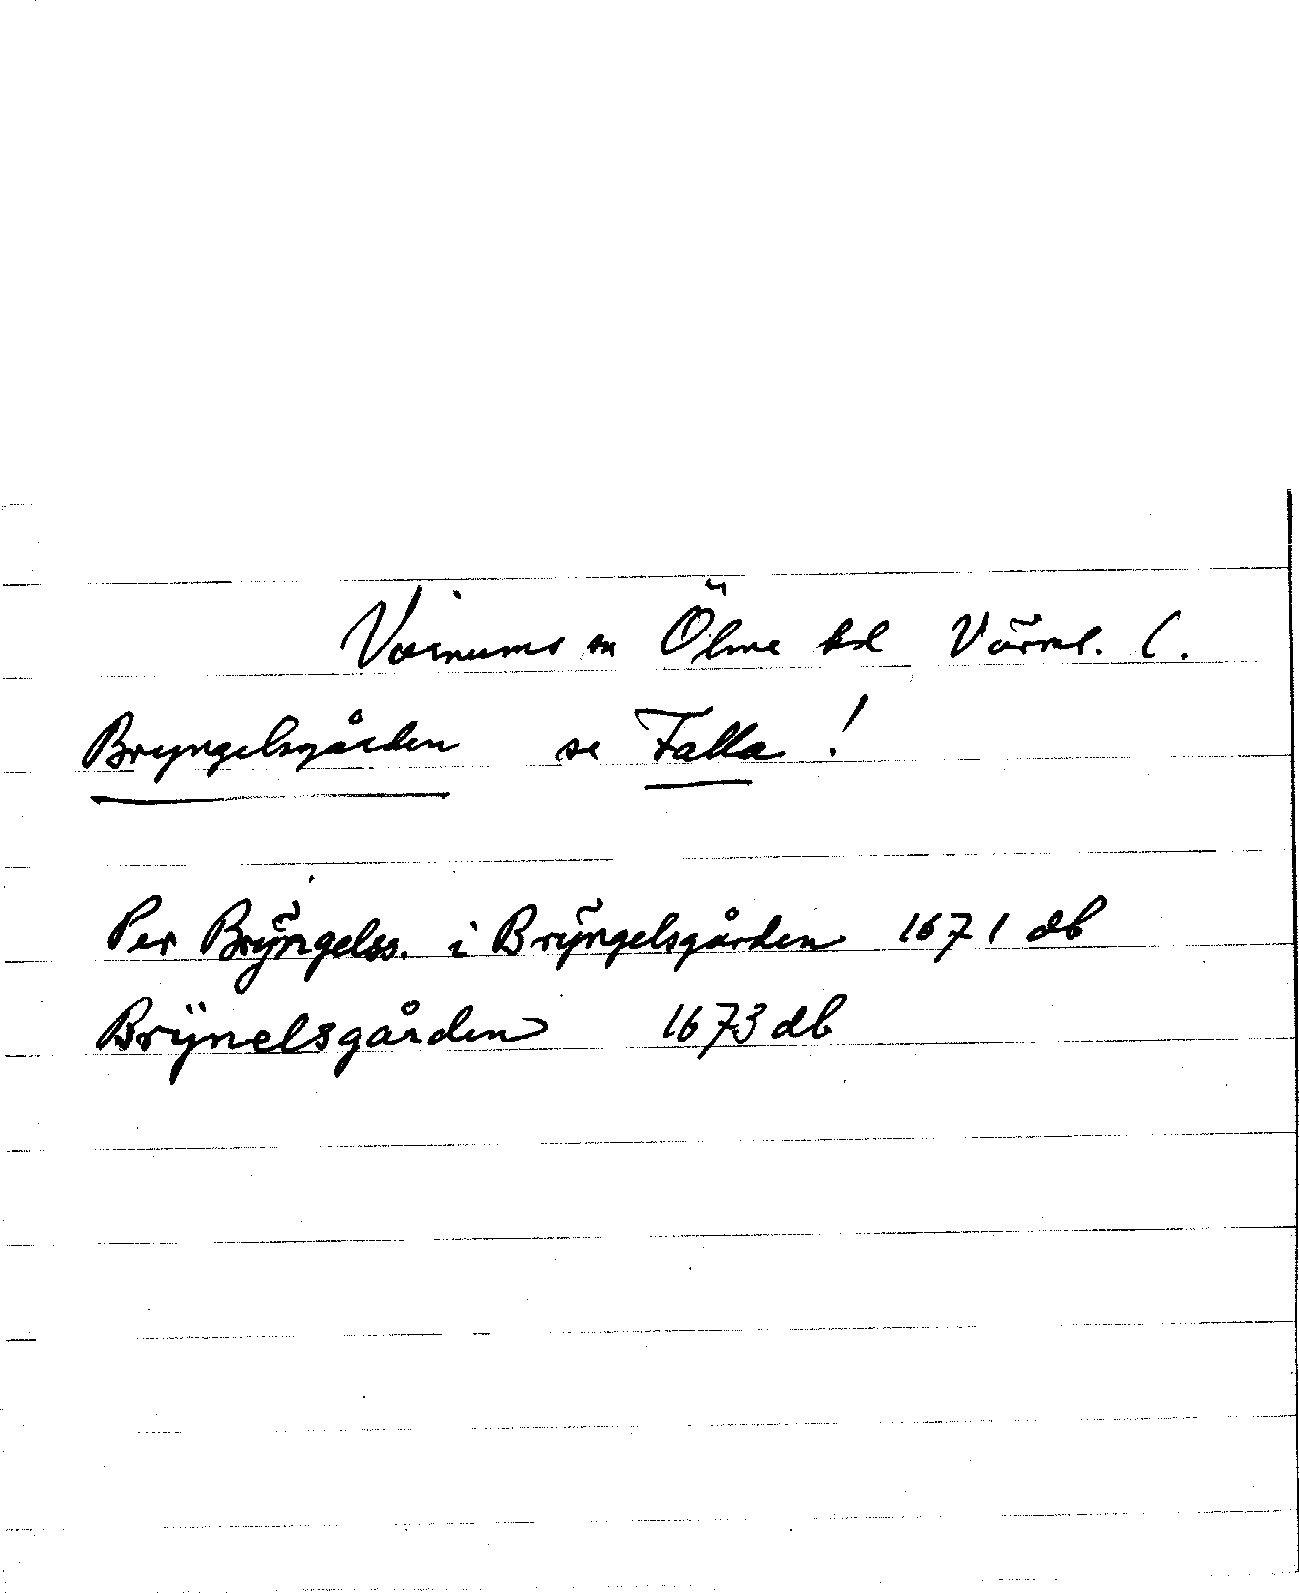 Varnums sn Ölme hd Värml. l.
Bryngelsgården se Falla !
Per Brÿngelss. i Brÿngelsgården 1671 db
Brÿnelsgården 1673 db